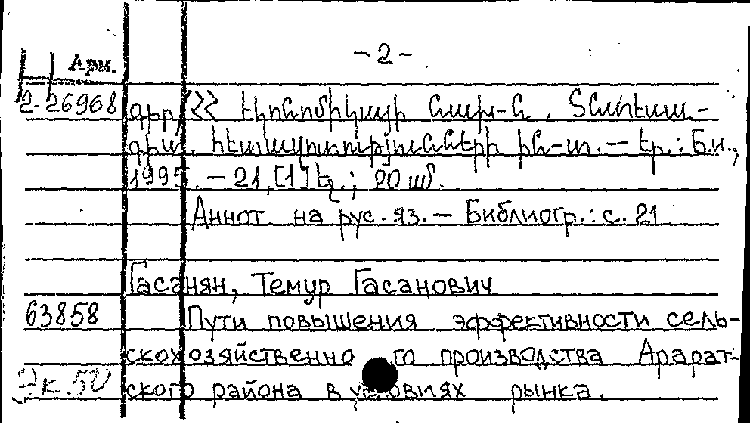 - 2 -
Арм.
2-26968 գրք/ՀՀ էկոնոմիկայի նախ-ն. Տնտեսա-
գիտ. հետազոտությունների ին-տ. — Եր.: Б.и.,
1995. — 21, [1] էջ.; 20 սմ.
Аннот. на рус. яз. — Библиогр.: с. 21
Гасанян, Темур Гасанович
63858 Пути повышения эффективности сель-
скохозяйственно го производства Арарат-
ского района в условиях рынка.